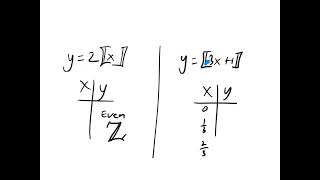 y = 2⟦x⟧
x y
Even
ℤ
y = ⟦3x+1⟧
x y
0
1/3
2/3